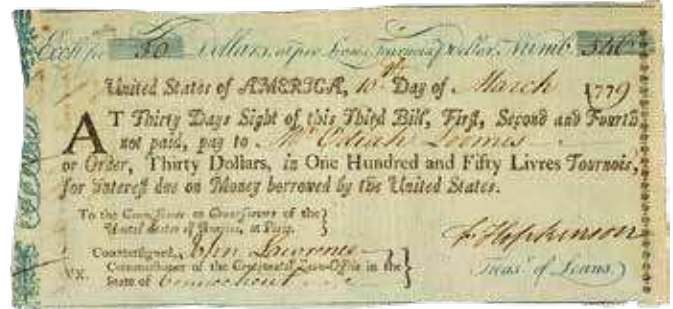 Exch. for 30 Dollars, at five Livres Tournois per Dollar. Numb. 526
United States of AMERICA, 10th Day of March 1779
AT Thirty Days Sight of this Third Bill, First, Second and Fourth
not paid, pay to Mr.
or Order, Thirty Dollars, in One Hundred and Fifty Livres Tournois,
for Interest due on Money borrowed by the United States.
To the Commissioner or Commissioners of the
United States of America, at Paris.
F Hopkinson
Countersigned, Jno Lawrence
Treasr. of Loans.
Commissioner of the Continental Loan-Office in the
State of Connecticut